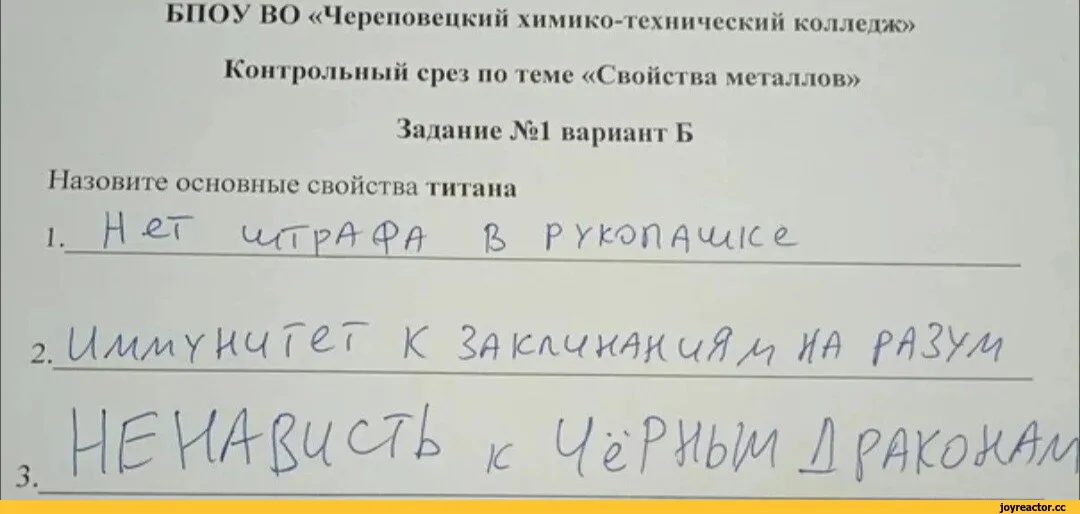 БПОУ ВО «Череповецкий химико-технический колледж»
Контрольный срез по теме «Свойства металлов»
Задание №1 вариант Б
Назовите основные свойства титана
1. Нет штрафа в рукопашке
2. Иммунитет к заклинаниям на разум
3. НЕНАВИСТЬ к Чёрным Драконам
joyreactor.cc